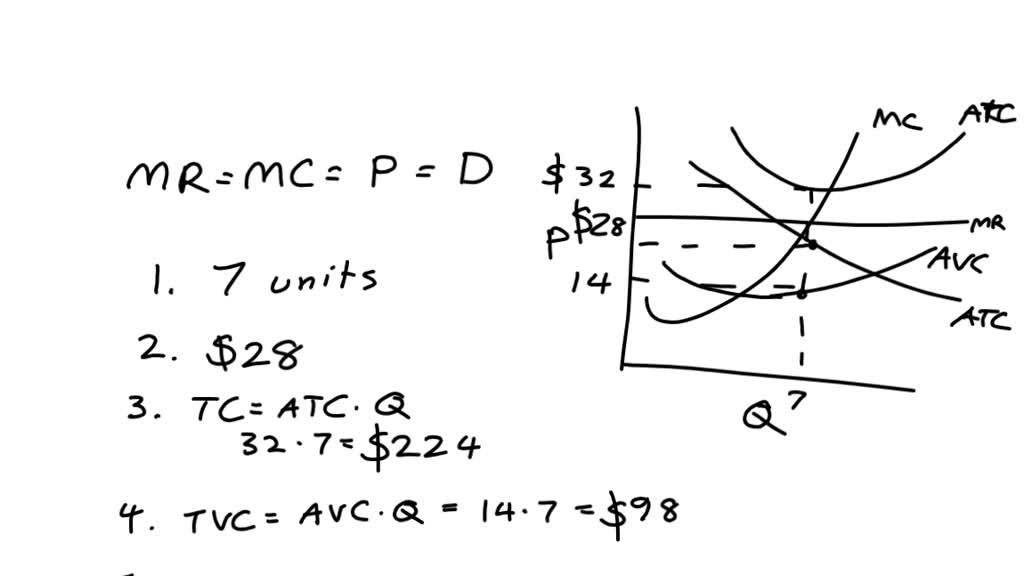 MR = MC = P = D
1. 7 units
2. $28
3. TC = ATC · Q
32 · 7 = $224
4. TVC = AVC · Q = 14 · 7 = $98
MC
ATC
$32
$28
MR
P
AVC
14
ATC
Q 7